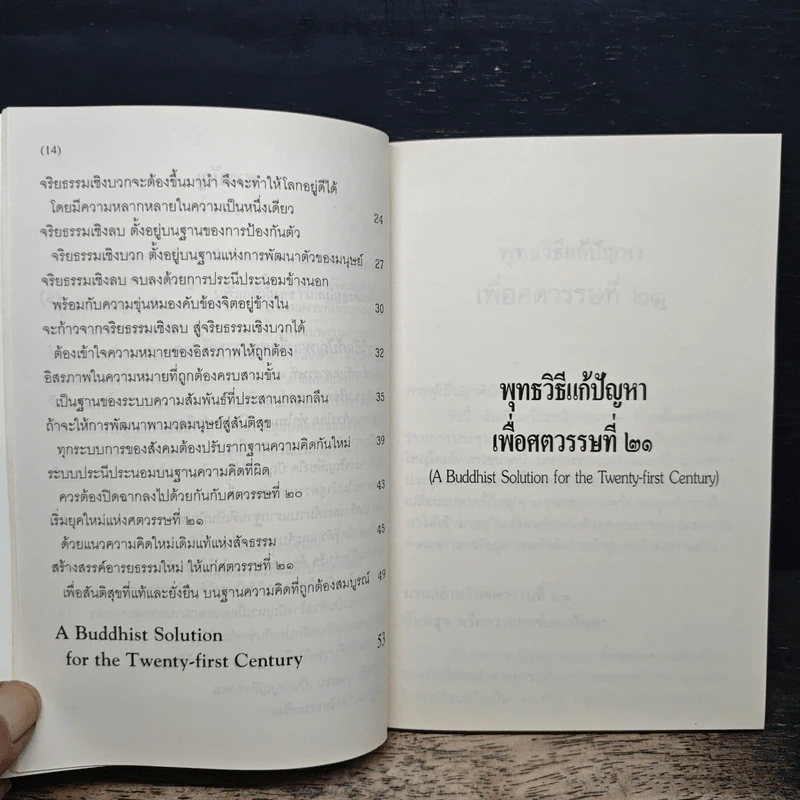 (14)
จริยธรรมเชิงบวกจะต้องขึ้นมานำ จึงจะทำให้โลกอยู่ดีได้
โดยมีความหลากหลายในความเป็นหนึ่งเดียว 24
จริยธรรมเชิงลบ ตั้งอยู่บนฐานของการป้องกันตัว
จริยธรรมเชิงบวก ตั้งอยู่บนฐานแห่งการพัฒนาตัวของมนุษย์ 27
จริยธรรมเชิงลบ จบลงด้วยการประนีประนอมข้างนอก
พร้อมกับความขุ่นหมองคับข้องจิตอยู่ข้างใน 30
จะก้าวจากจริยธรรมเชิงลบ สู่จริยธรรมเชิงบวกได้
ต้องเข้าใจความหมายของอิสรภาพให้ถูกต้อง 32
อิสรภาพในความหมายที่ถูกต้องครบสามขั้น
เป็นฐานของระบบความสัมพันธ์ที่ประสานกลมกลืน 35
ถ้าจะให้การพัฒนาพามวลมนุษย์สู่สันติสุข
ทุกระบบการของสังคมต้องปรับรากฐานความคิดกันใหม่ 39
ระบบประนีประนอมบนฐานความคิดที่ผิด
ควรต้องปิดฉากลงไปด้วยกันกับศตวรรษที่ ๒๐ 43
เริ่มยุคใหม่แห่งศตวรรษที่ ๒๑
ด้วยแนวความคิดใหม่เดิมแท้แห่งสัจธรรม 45
สร้างสรรค์อารยธรรมใหม่ ให้แก่ศตวรรษที่ ๒๑
เพื่อสันติสุขที่แท้และยั่งยืน บนฐานความคิดที่ถูกต้องสมบูรณ์ 49
A Buddhist Solution
for the Twenty-first Century 53
พุทธวิธีแก้ปัญหา
เพื่อศตวรรษที่ ๒๑
(A Buddhist Solution for the Twenty-first Century)